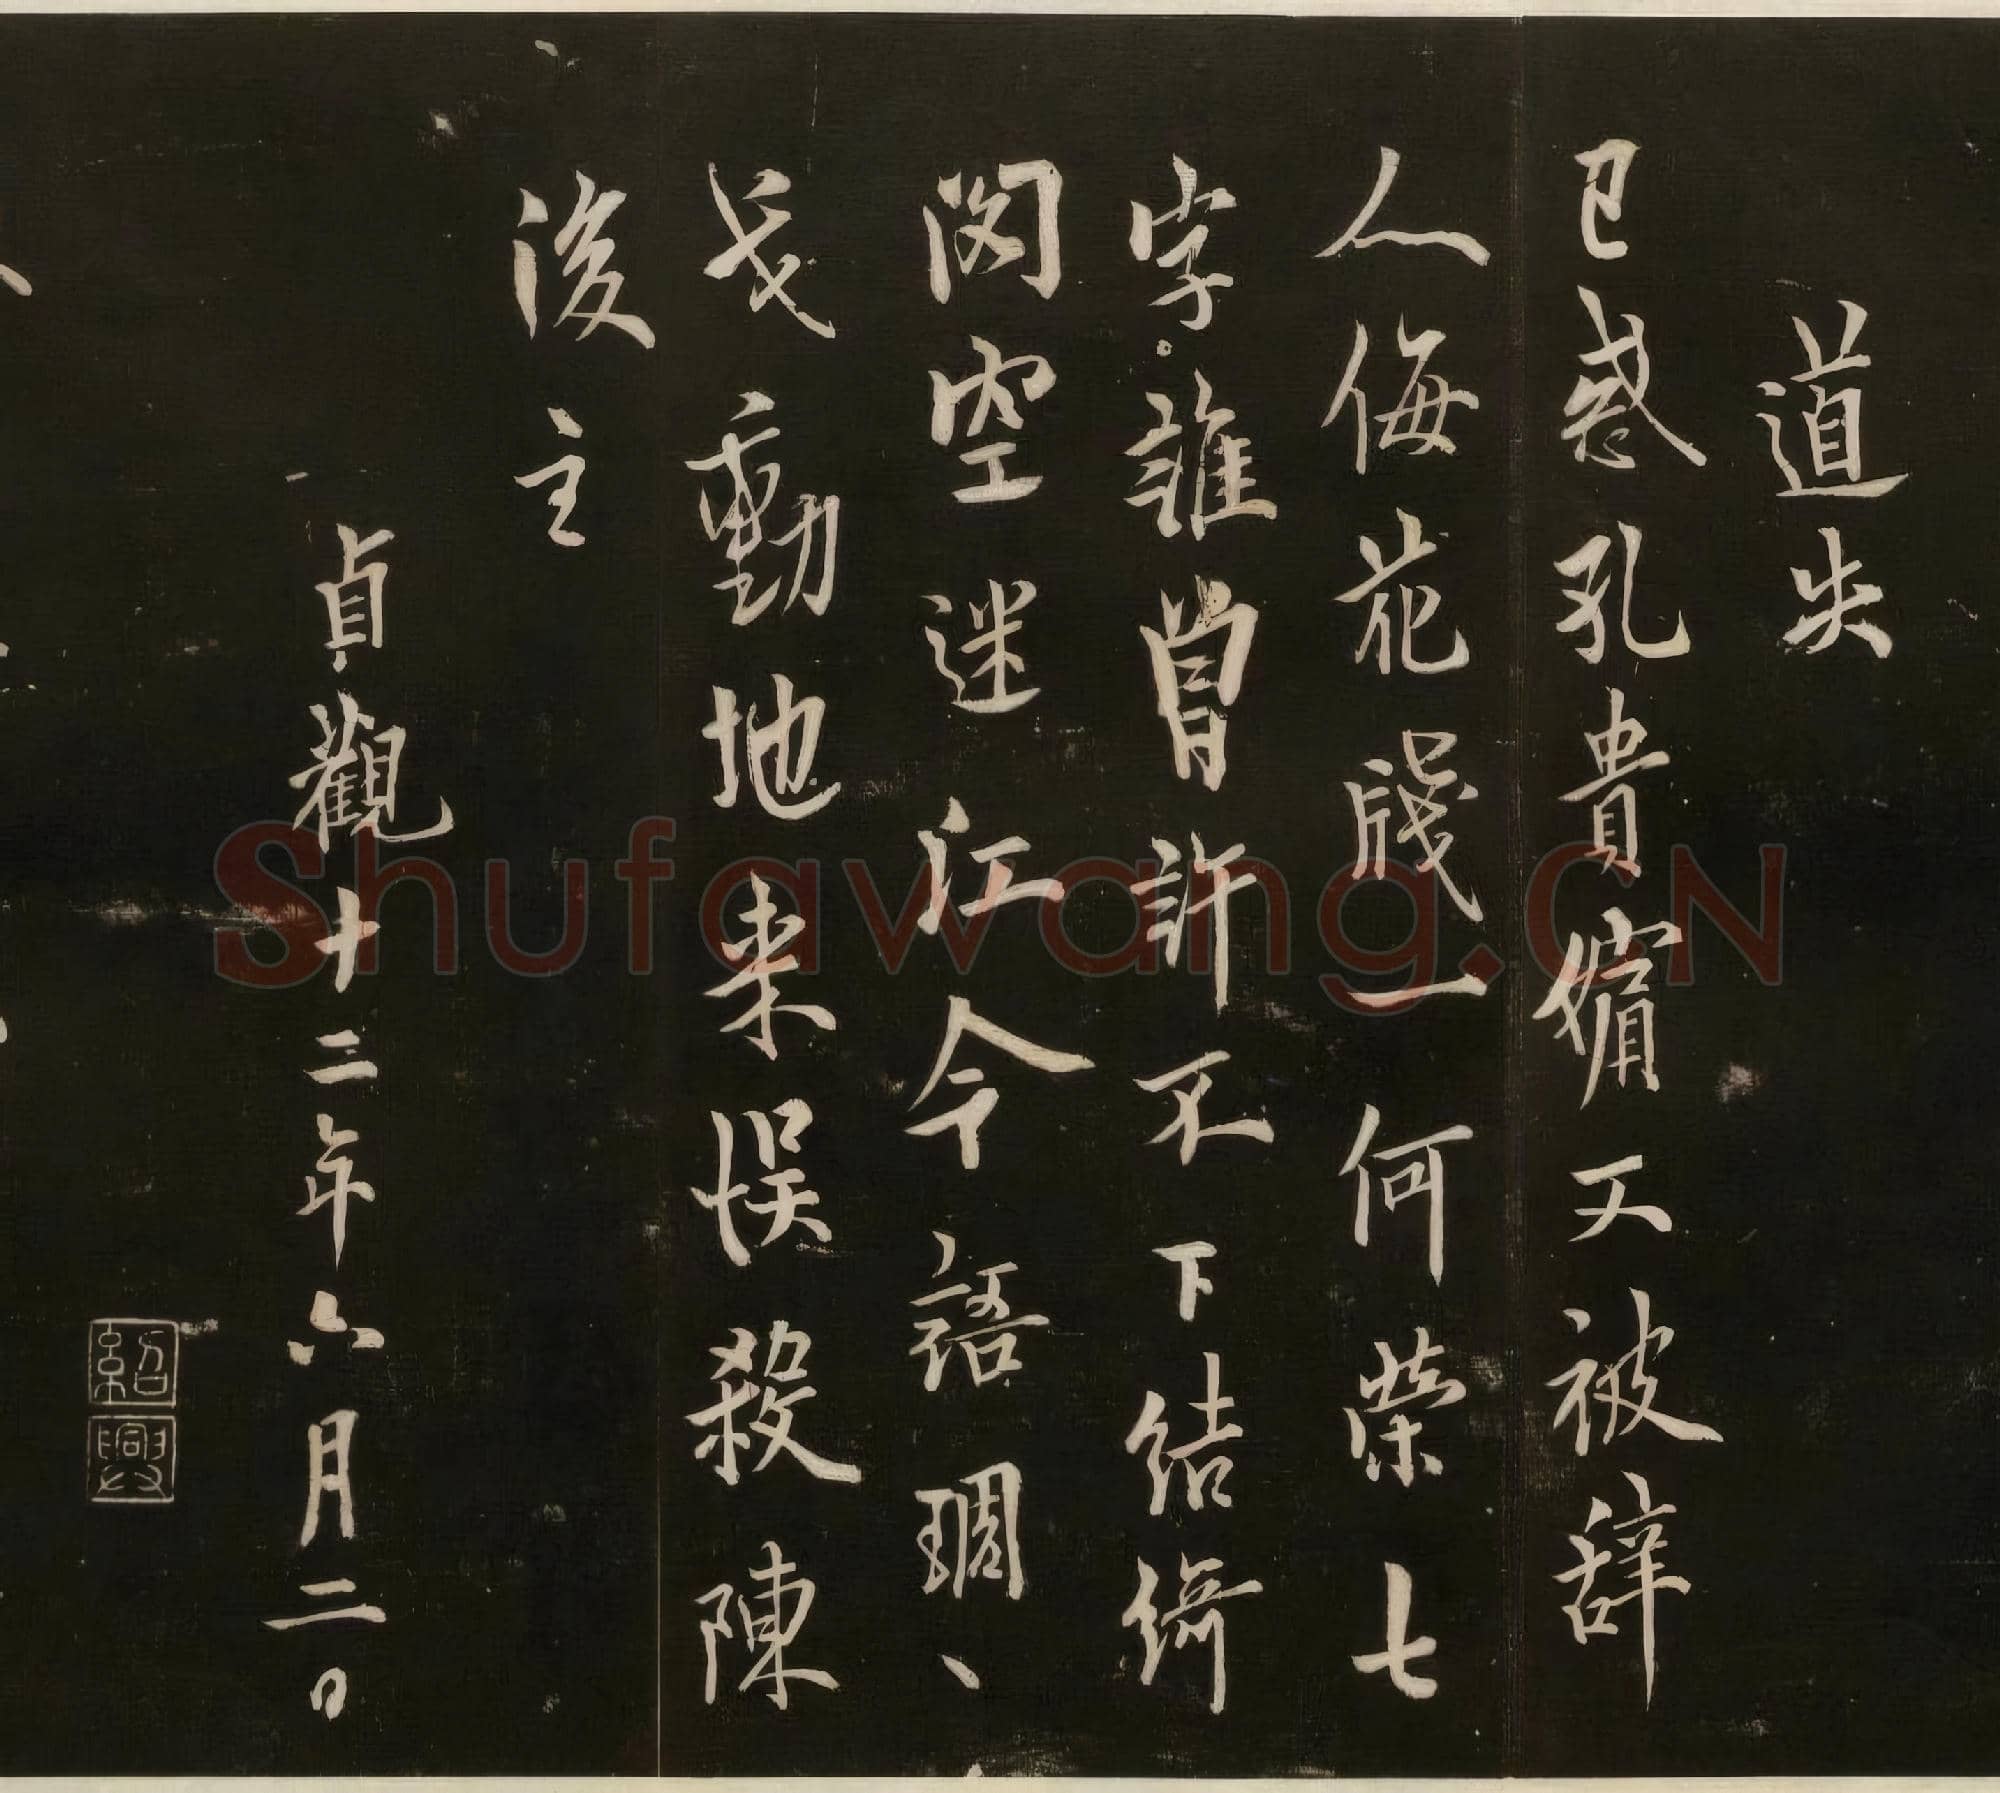 道失
已惑孔貴嬪又被辭
人侮花牋一何榮七
字誰曾許不下結綺
閣空迷江令語琱、
戈動地来悮殺陳
後主
貞觀十三年六月二日
紹興
Shufawang.CN